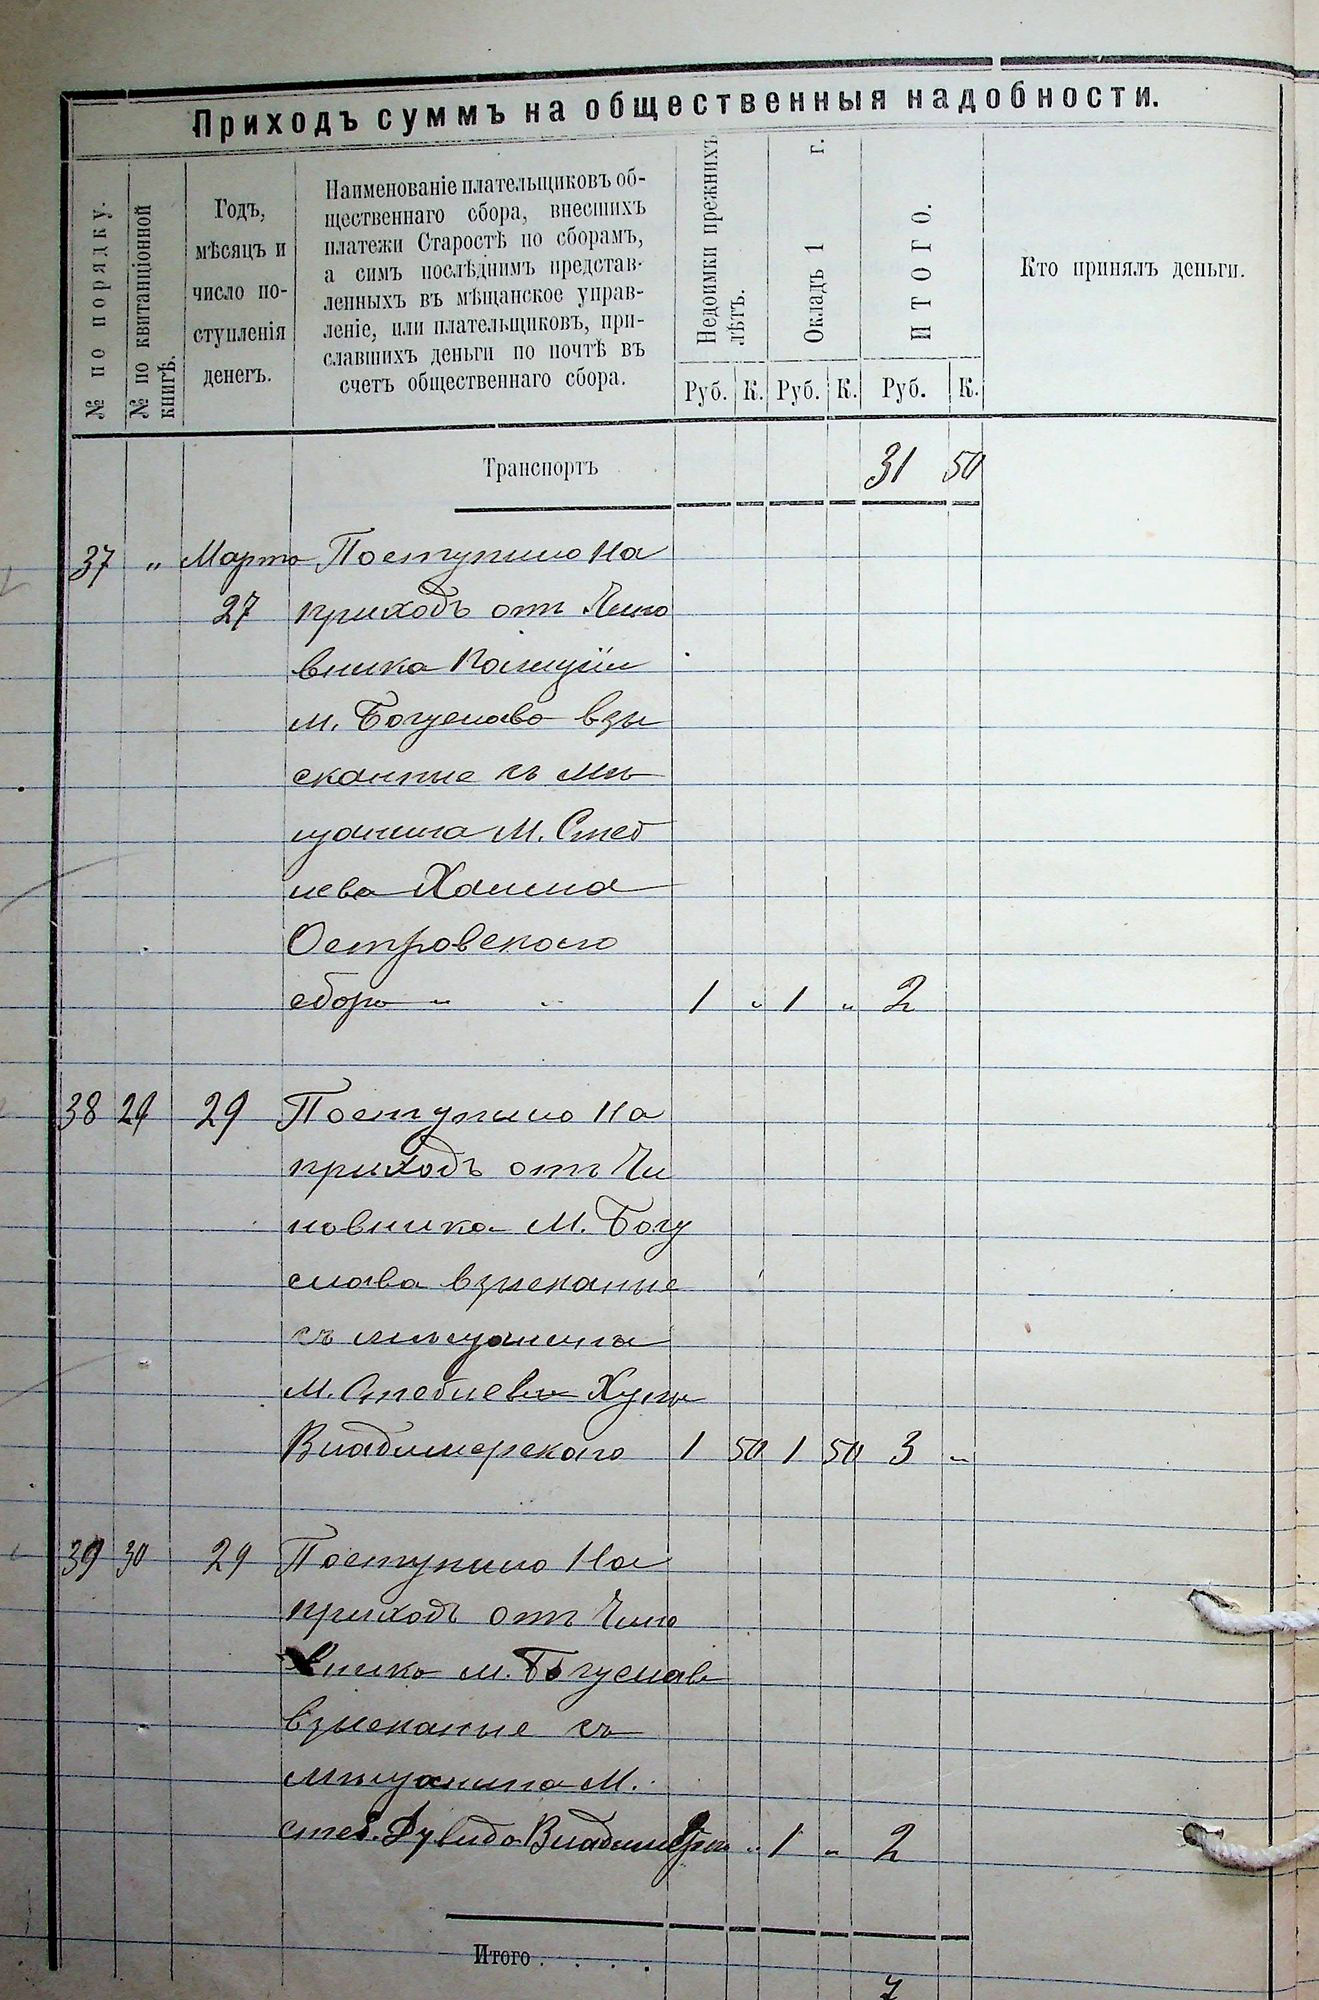 Приходъ суммъ на общественныя надобности.
№ по порядку.
№ по квитанціонной книгѣ.
Годъ, мѣсяцъ и число поступленія денегъ.
Наименованіе плательщиковъ об-
щественнаго сбора, внесшихъ
платежи Старостѣ по сборамъ,
а симъ послѣднимъ представ-
ленныхъ въ мѣщанское управ-
леніе, или плательщиковъ, при-
славшихъ деньги по почтѣ въ
счетъ общественнаго сбора.
Недоимки прежнихъ лѣтъ.
Окладъ 1 г.
ИТОГО.
Кто принялъ деньги.
Руб. К. Руб. К. Руб. К.
Транспортъ 31 50
37 " Марта Поступило на
27 приходъ отъ Чино
вника Полиціи
м. Богуслава взы
сканные съ мѣ
щанина М. Стеб
лева Хаима
Островского
сбора " " 1 " 1 " 2
38 29 29 Поступило на
приходъ отъ Чи
новника М. Богу
слава взысканые
съ мѣщанина
М. Стеблева
Владимерского 1 50 1 50 3 "
39 30 29 Поступило на
приходъ отъ Чино
вника м. Богуслав
взысканые съ
мѣщанина М.
стеб. Дувида " 1 " 2
Итого . . . .
7